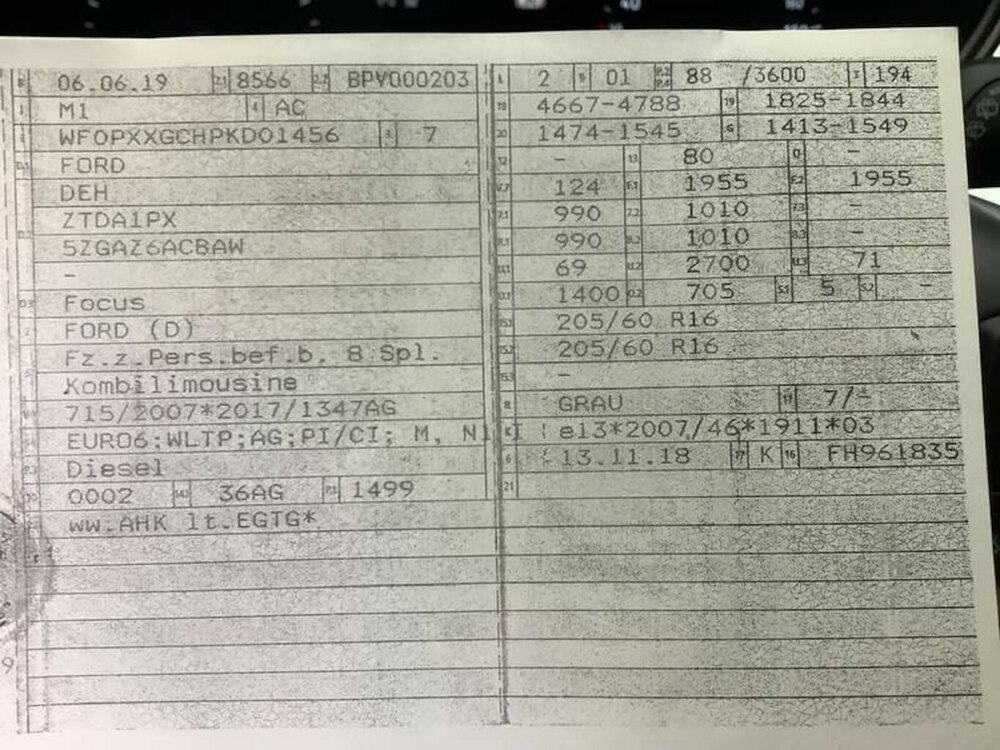 B 06.06.19 2.1 8566 2.2 BPV000203
J M1 4 AC
E WF0PXXGCHPKD01456 3 7
D.1 FORD
DEH
D.2 ZTDA1PX
5ZGAZ6ACBAW
-
D.3 Focus
2 FORD (D)
5 Fz.z.Pers.bef.b. 8 Spl.
Kombilimousine
V.9 715/2007*2017/1347AG
14 EURO6;WLTP;AG;PI/CI; M, N1 I
P.3 Diesel
10 0002 14.1 36AG P.1 1499
22 ww.AHK lt.EGTG*
L 2 9 01 P.2 P.4 88 /3600 T 194
18 4667-4788 19 1825-1844
20 1474-1545 G 1413-1549
12 - 13 80 Q -
V.7 124 F.1 1955 F.2 1955
7.1 990 7.2 1010 7.3 -
8.1 990 8.2 1010 8.3 -
U.1 69 U.2 2700 U.3 71
O.1 1400 O.2 705 S.1 5 S.2 -
15.1 205/60 R16
15.2 205/60 R16
15.3 -
R GRAU 11 7/-
K e13*2007/46*1911*03
6 13.11.18 17 K 16 FH961835
21
9